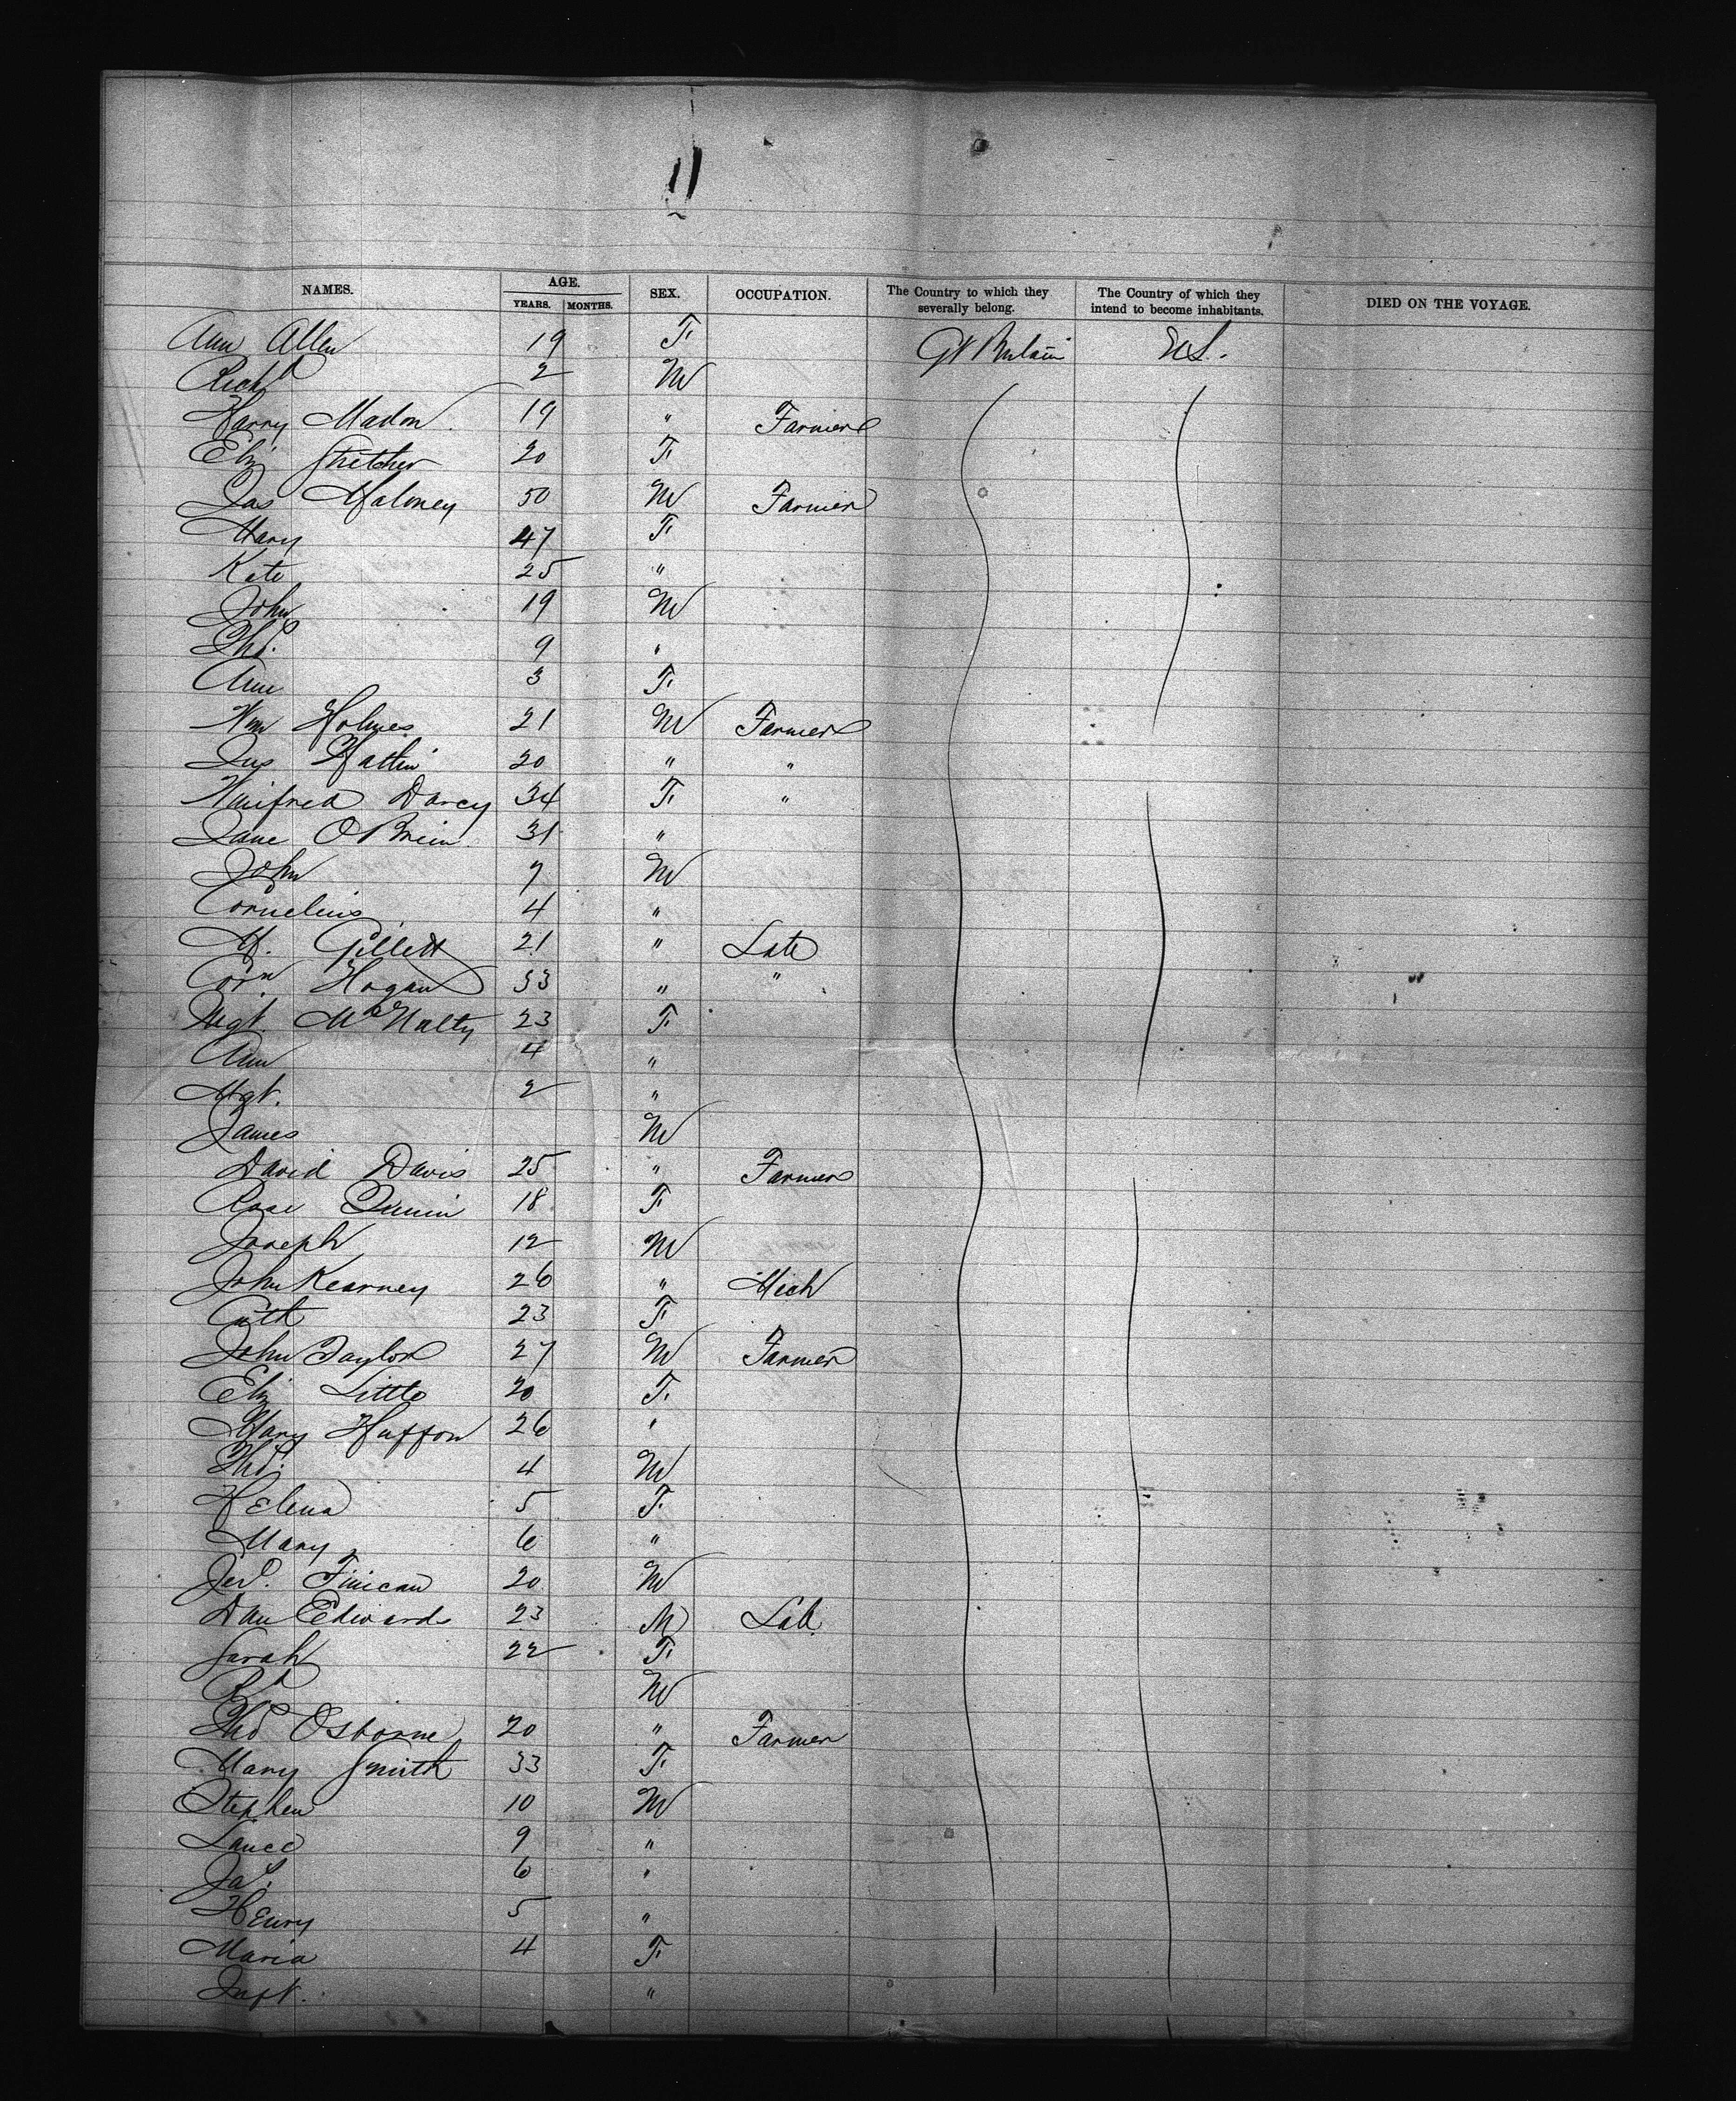 11
NAMES. AGE. YEARS. MONTHS. SEX. OCCUPATION. The Country to which they severally belong. The Country of which they intend to become inhabitants. DIED ON THE VOYAGE.
Ann Allen 19 F. Gt Britain U.S.
Richd 2 M
Harry Madon 19 " Farmer
Eliz Stretcher 20 F.
Jas Maloney 50 M Farmer
Mary 47 F.
Kate 25 "
John 19 M
Thos. 9 "
Ann 3 F.
Wm Holmes 21 M Farmer
Jas 20 " "
Winifred Darcy 34 F. "
Jane O'Brien 31 "
John 7 M
Cornelius 4 "
M. Gillett 21 " Late
Corn Hogan 33 " "
Mgt. McNulty 23 F.
Ann 4 "
Mgt. 2 "
James M
David Davis 25 " Farmer
Rose Quinn 18 F.
Joseph 12 M
John Kearney 26 " Mich
Cath 23 F.
John Taylor 27 M Farmer
Eliz Little 20 F.
Mary Huffon 26 "
Thos. 4 M
Helena 5 F.
Mary 6 "
Jer. Finican 20 M
Dan Edwards 23 M Lab.
Sarah 22 F.
Rt M
Thos Osborne 20 " Farmer
Mary Smith 33 F.
Stephen 10 M
Lance 9 "
Jas. 6 "
Henry 5 "
Maria 4 F.
Inft. "